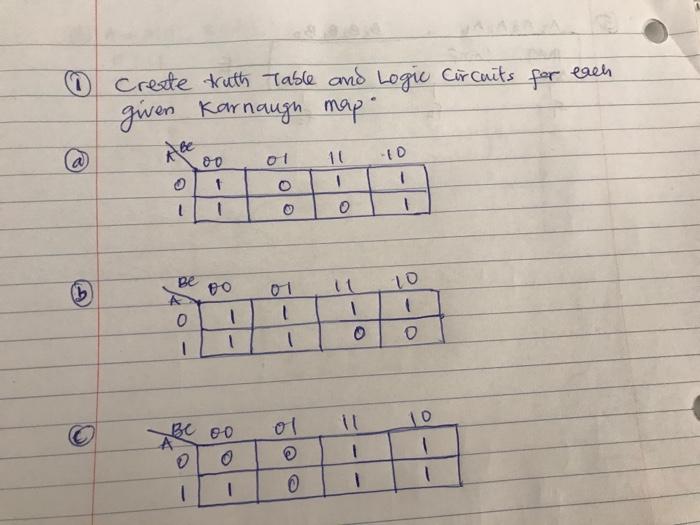 ① Create truth Table and Logic Circuits for each
given Karnaugh map.
ⓐ
A BC 00 01 11 10
0 1 0 1 1
1 1 0 0 1
ⓑ
A BC 00 01 11 10
0 1 1 1 1
1 1 1 0 0
ⓒ
A BC 00 01 11 10
0 0 0 1 1
1 1 0 1 1